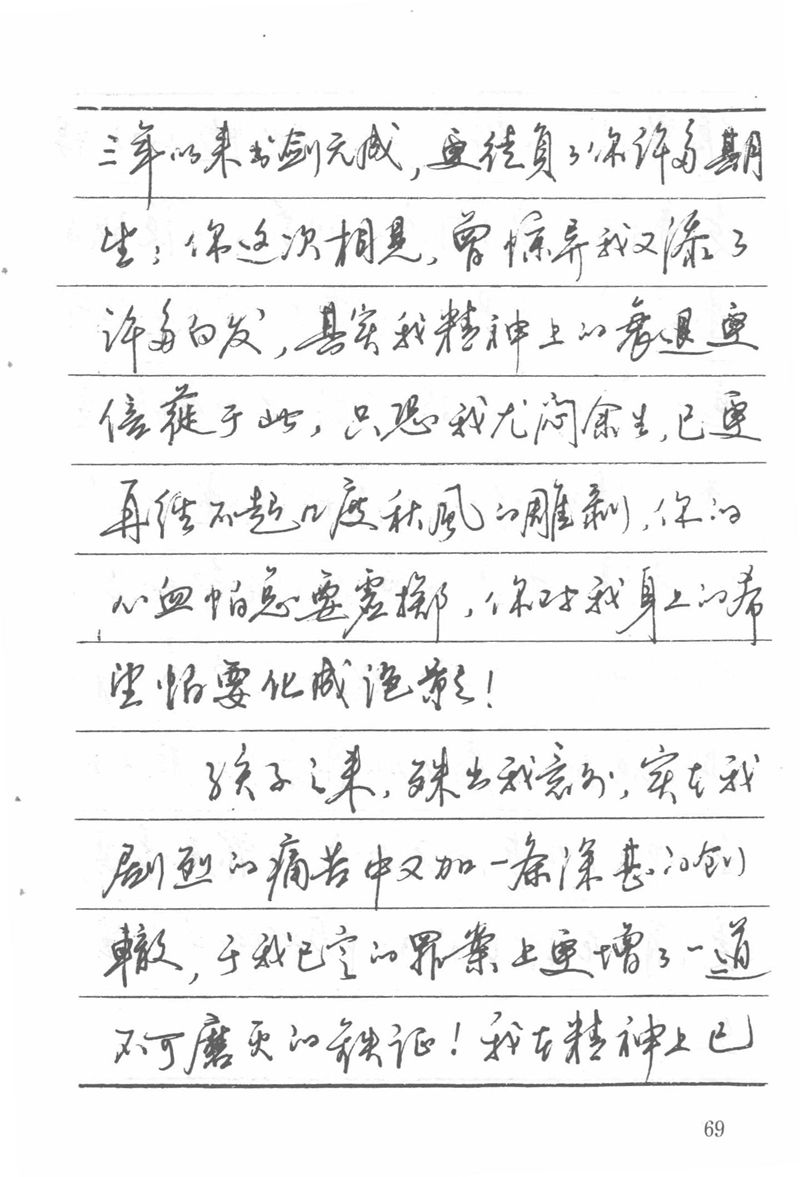 三年以来书剑无成，更徒负了你许多期
望；你这次相见，曾惊异我又添了
许多白发，其实我精神上的衰退更
倍蓰于此，只恐我尤闷余生，已更
再经不起几度秋风的雕剥，你的
心血怕总要虚掷，你对我身上的希
望怕要化成泡影！
孩子之来，殊出我意外，实在我
剧烈的痛苦中又加一条深甚的创
辙，于我已定的罪案上更增了一道
不可磨灭的铁证！我在精神上已
69